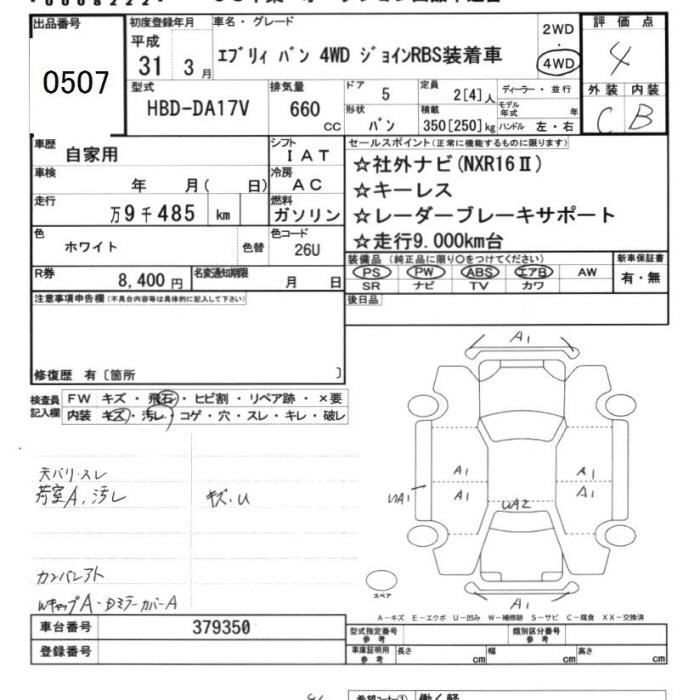 * 0 0 0 8 2 2 2 *
出品番号 初度登録年月 車名・グレード 2WD 評価点
0507 平成 31 3月 エブリィ バン 4WD ジョインRBS装着車 4WD 4
型式 排気量 ドア 5 定員 2[4]人 ディーラー・並行 外装 内装
HBD-DA17V 660 CC 形状 バン 積載 350[250]kg モデル年式 年 ハンドル 左・右 C B
車歴 自家用 シフト IAT セールスポイント(正常に機能するものに限ります)
車検 年 月( 日) 冷房 AC ☆社外ナビ(NXR16Ⅱ)
走行 万9千485 km 燃料 ガソリン ☆キーレス
☆レーダーブレーキサポート
色 ホワイト 色替 色コード 26U ☆走行9.000km台
装備品(純正品に限り○をつけてください) 新車保証書
R券 8,400円 名変通知期限 月 日 PS PW ABS エアB AW 有・無
SR ナビ TV カワ
注意事項申告欄(不具合内容等は具体的に記入して下さい) 後日品
修復歴 有〔箇所 〕
検査員記入欄 FW キズ・飛石・ヒビ割・リペア跡・×要
内装 キズ・汚レ・コゲ・穴・スレ・キレ・破レ
天バリ・スレ
荷室A,汚レ キズ・U
A1
A1 A1
UA1 A1 A1
UA2
スペア
A1
WキャップA・DミラーカバーA
A-キズ E-エクボ U-凹み W-補修跡 S-サビ C-腐食 XX-交換済
車台番号 379350 型式指定番号 参考 類別区分番号 参考
登録番号 車庫証明用 参考 長さ cm 幅 cm 高さ cm
希望コーナー① 働く軽